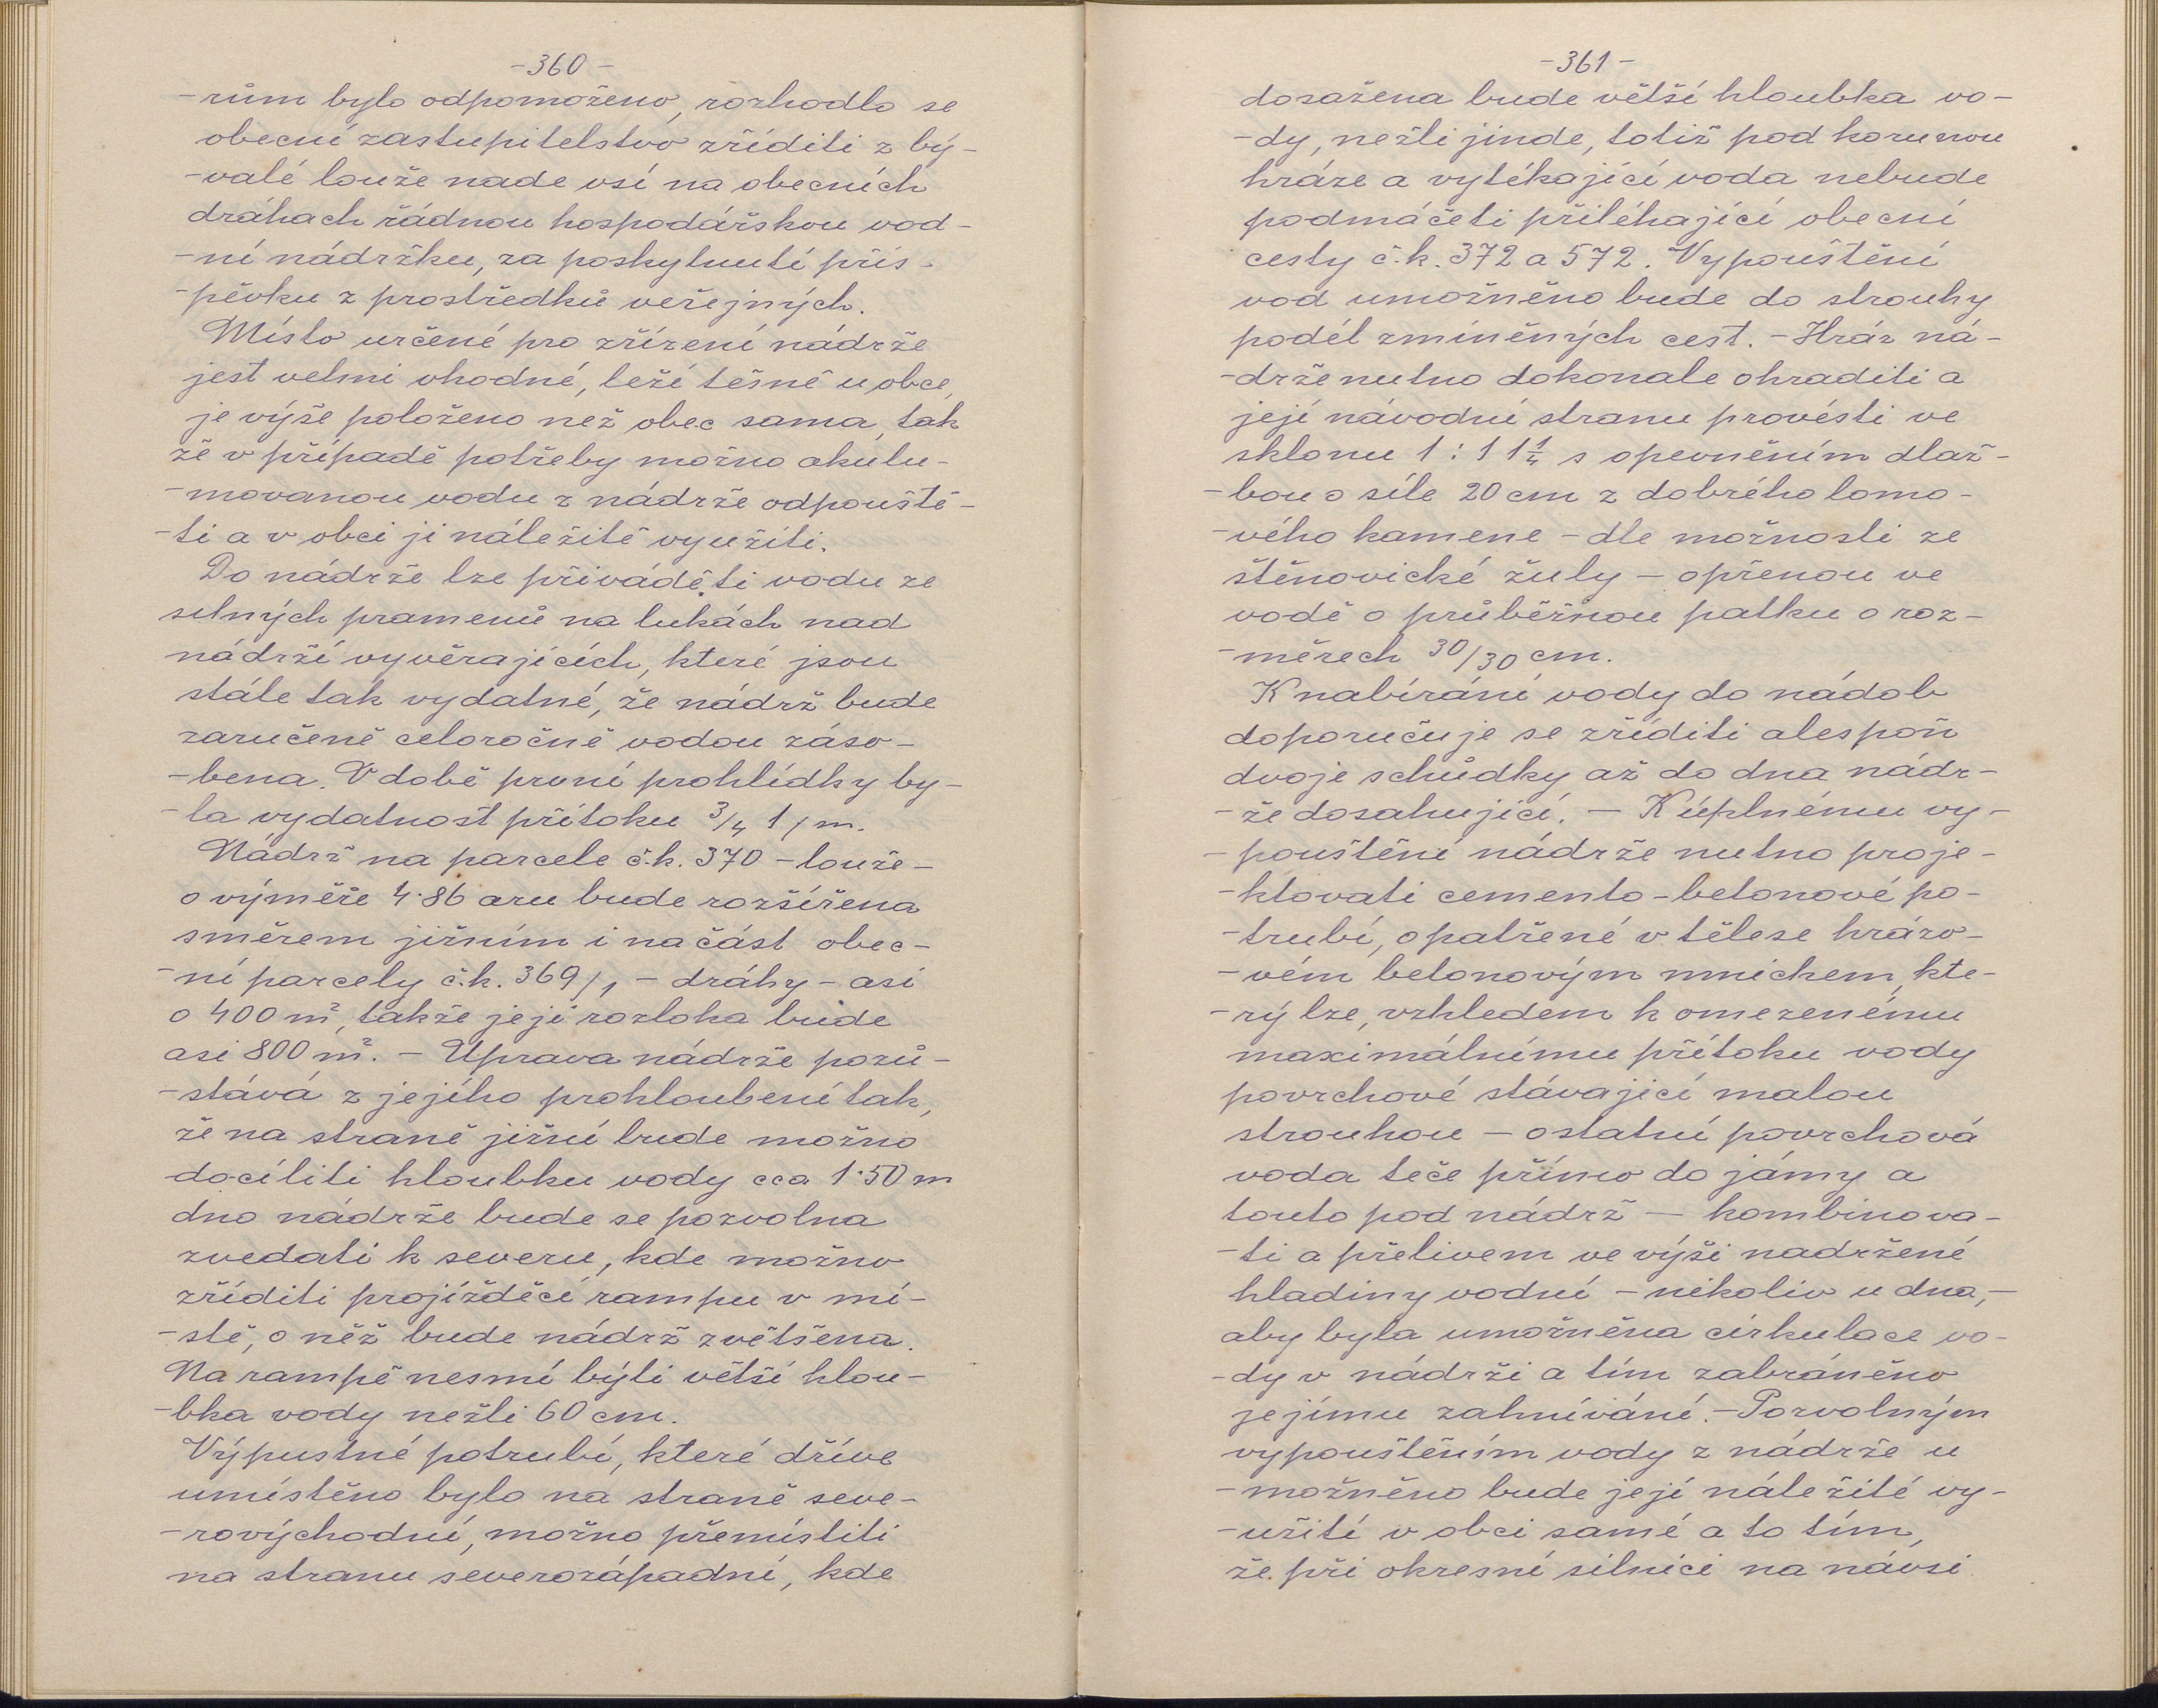 -360-
-rům bylo odpomoženo, rozhodlo se
obecní zastupitelstvo zříditi z bý-
-valé louže nade vsí na obecních
dráhach řádnou hospodářskou vod-
-ní nádržku, za poskytnutí přís-
-pěvku z prostředků veřejných.
Místo určené pro zřízení nádrže
jest velmi vhodné, leží těsně u obce,
je výše položeno než obec sama, tak
že v případě potřeby možno akulu-
-movanou vodu z nádrže odpouště-
-ti a v obci ji náležitě využíti.
Do nádrže lze přiváděti vodu ze
silných pramenů na lukách nad
nádrží vyvěrajících, které jsou
stále tak vydatné, že nádrž bude
zaručeně celoročně vodou záso-
-bena. V době první prohlídky by-
-la vydatnost přítoku 3/4 1/m.
Nádrž na parcele č.k. 370 - louže -
o výměře 4·86 aru bude rozšířena
směrem jižním i na část obec-
-ní parcely č.k. 369/1 - dráhy - asi
o 400 m², takže její rozloha bude
asi 800 m². - Úprava nádrže pozů-
-stává z jejího prohloubení tak,
že na straně jižní bude možno
docíliti hloubku vody cca 1·50 m
dno nádrže bude se pozvolna
zvedati k severu, kde možno
zříditi projížděcí rampu v mí-
-stě, o něž bude nádrž zvětšena.
Na rampě nesmí býti větší hlou-
-bka vody nežli 60 cm.
Výpustné potrubí, které dříve
umístěno bylo na straně seve-
-rovýchodní, možno přemístiti
na stranu severozápadní, kde
-361-
dosažena bude větší hloubka vo-
-dy, nežli jinde, totiž pod korunou
hráze a vytékající voda nebude
podmáčeti přiléhající obecní
cesty č.k. 372 a 572. Vypouštění
vod umožněno bude do strouhy
podél zmíněných cest. - Hráz ná-
-drže nutno dokonale ohraditi a
její návodní stranu provésti ve
sklonu 1 : 1 1¼ s opevněním dlaž-
-bou o síle 20 cm z dobrého lomo-
-vého kamene - dle možnosti ze
štěnovické žuly - opřenou ve
vodě o průběžnou patku o roz-
-měrech 30/30 cm.
K nabírání vody do nádob
doporučuje se zříditi alespoň
dvoje schůdky až do dna nádr-
-že dosahující. - K úplnému vy-
-pouštění nádrže nutno proje-
-ktovati cemento-betonové po-
-trubí, opatřené v tělese hrázo-
-vém betonovým mnichem, kte-
-rý lze, vzhledem k omezenému
maximálnímu přítoku vody
povrchové stávající malou
strouhou - ostatní povrchová
voda teče přímo do jámy a
touto pod nádrž - kombinova-
-ti a přelivem ve výši nadržené
hladiny vodní - nikoliv u dna, -
aby byla umožněna cirkulace vo-
-dy v nádrži a tím zabráněno
jejímu zahnívání. - Pozvolným
vypouštěním vody z nádrže u
-možněno bude její náležité vy-
-užití v obci samé a to tím,
že při okresní silnici na návsi